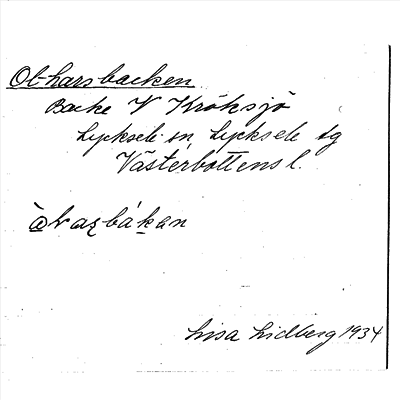 Ol-hansbacken
Backe V Kroksjö
Lycksele sn, Lycksele tg
Västerbottens l.
Lisa Lidberg 1934